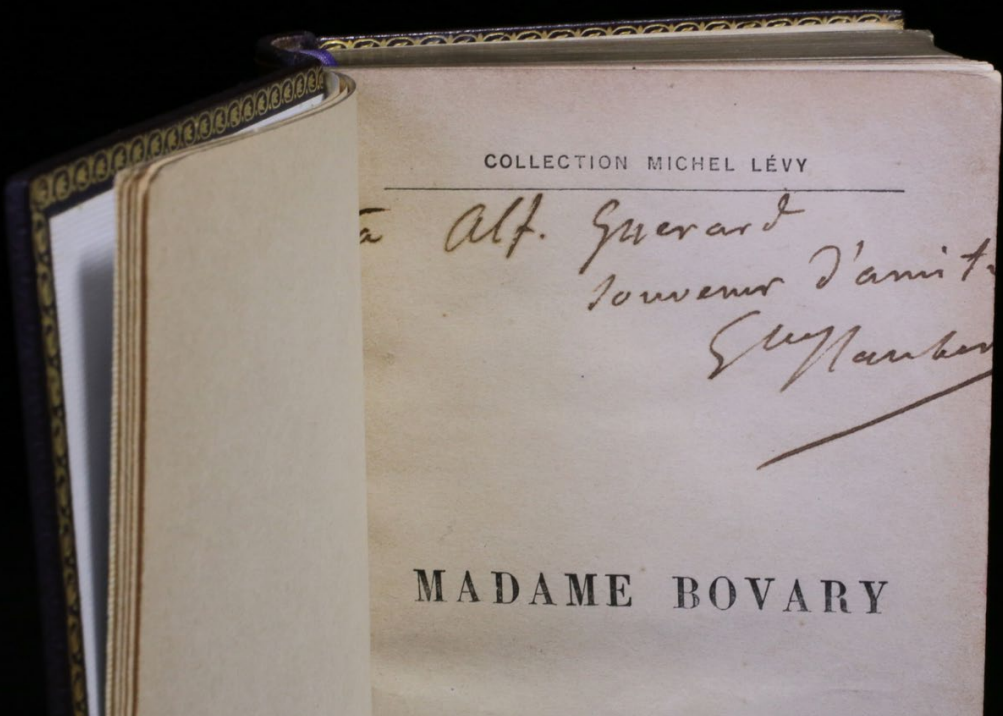 COLLECTION MICHEL LÉVY
à Alf. Guerard
souvenir d'amit
Gve Flauber
MADAME BOVARY